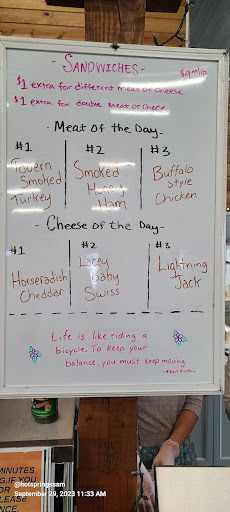 - SANDWICHES-
$1 extra for different meat or cheese
$1 extra for double meat or cheese
- Meat of the Day-
#1
Tavern
Smoked
Turkey
#2
Smoked
Honey
Ham
#3
Buffalo
Style
Chicken
- Cheese of the Day-
#1
Horseradish
Cheddar
#2
Lacey
Baby
Swiss
#3
Lightning
Jack
Life is like riding a
bicycle. To keep your
balance, you must keep moving
MINUTES
G.IF YOU
OR
LEASE
NCE.
@hotspringssam
September 29, 2023 11:33 AM